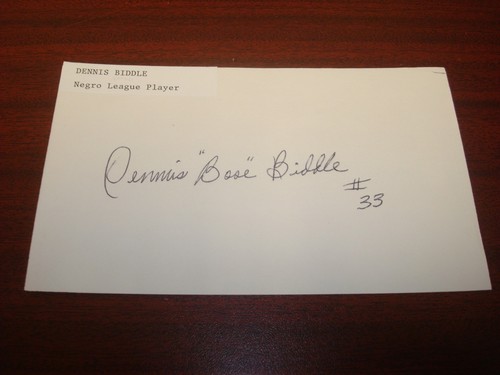 DENNIS BIDDLE
Negro League Player
Dennis "Bose" Biddle
#
33